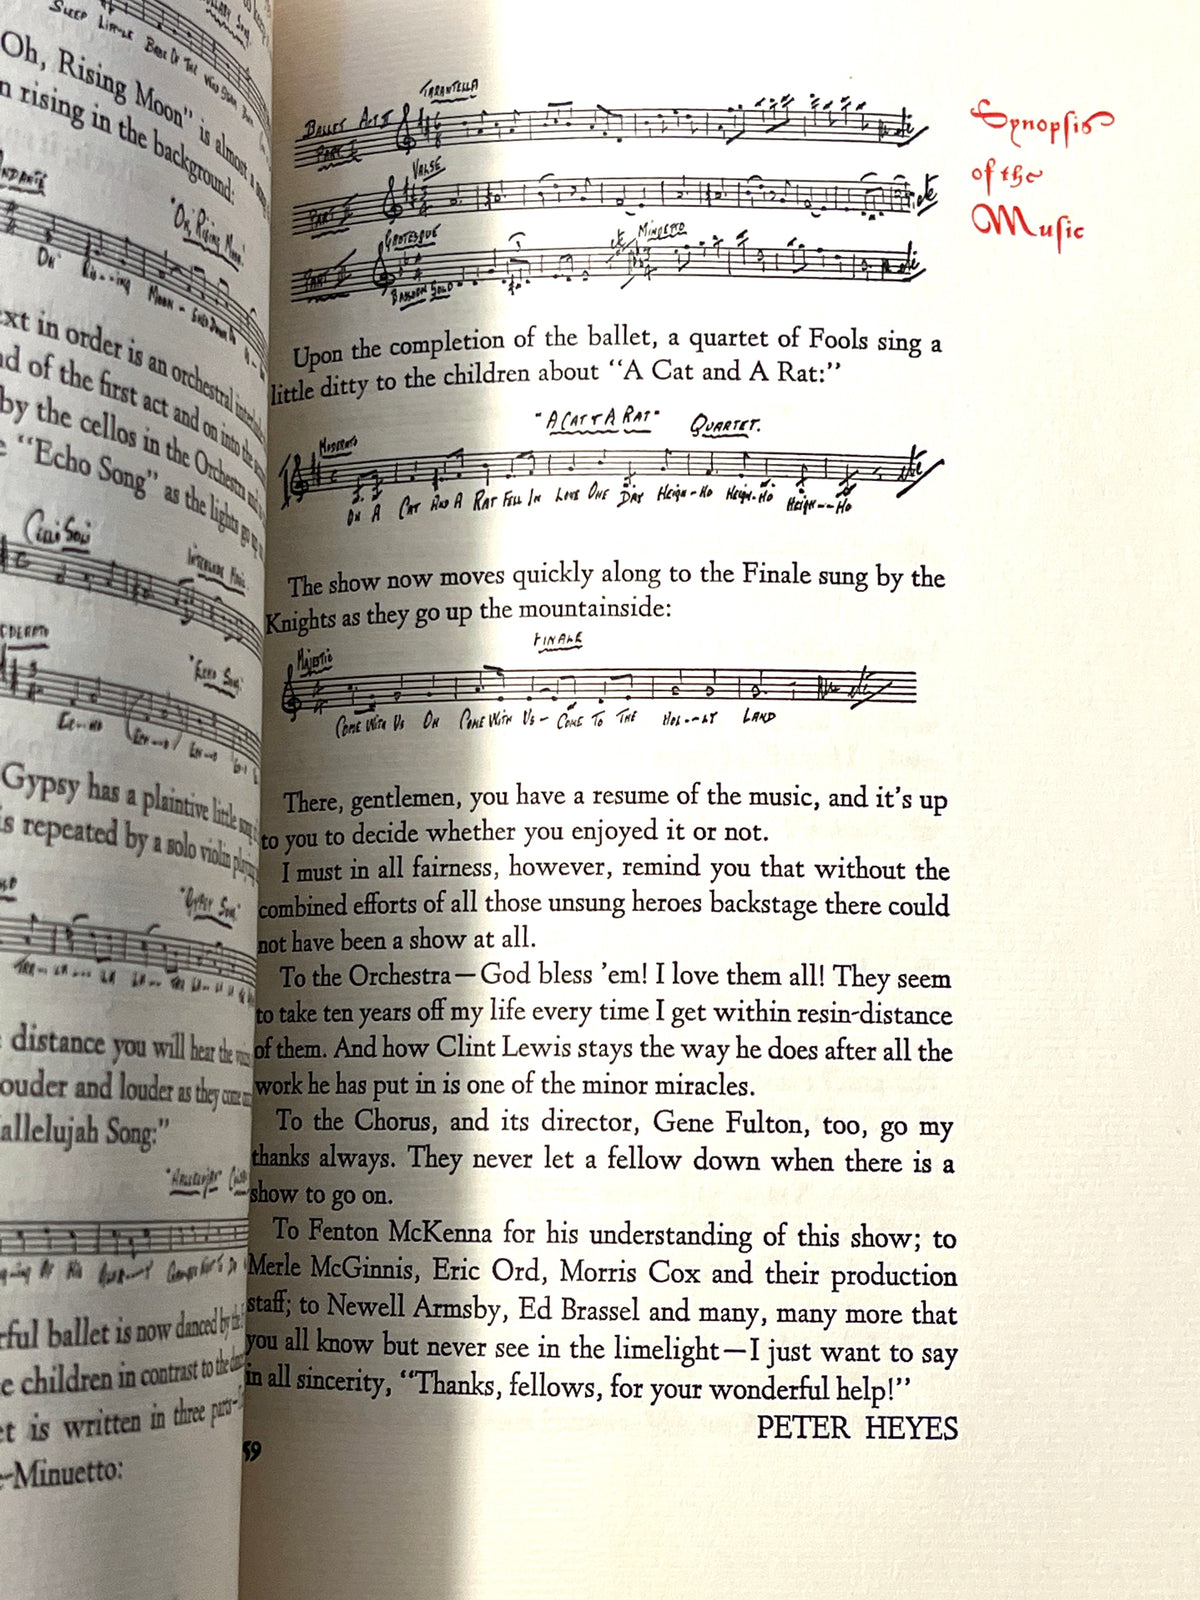 SLEEP LITTLE BABE OF THE
Oh, Rising Moon" is almost a
n rising in the background:
NDANTE
"OH, RISING MOON"
OH RIS--ING MOON -
ext in order is an orchestral
nd of the first act and on into the
by the cellos in the Orchestra
e "Echo Song" as the lights go up
CELLI SOLI
"ECHO SONG"
Gypsy has a plaintive little song
is repeated by a solo violin
"GYPSY SONG"
distance you will hear the
ouder and louder as they come
allelujah Song:"
rful ballet is now danced by the
e children in contrast to the
et is written in three parts—
e-Minuetto:
Synopsis
of the
Music
TARANTELLA
BALLET ACT II
PART I
VALSE
PART II
GROTESQUE
MINUETTO
PART III
BASSOON SOLO
Upon the completion of the ballet, a quartet of Fools sing a
little ditty to the children about "A Cat and A Rat:"
"A CAT & A RAT" QUARTET.
MODERATO
OH A CAT AND A RAT FELL IN LOVE ONE DAY HEIGH-HO HEIGH-HO HEIGH--HO
The show now moves quickly along to the Finale sung by the
Knights as they go up the mountainside:
FINALE
MAJESTIC
COME WITH US OH COME WITH US - COME TO THE HOL--LY LAND
There, gentlemen, you have a resume of the music, and it's up
to you to decide whether you enjoyed it or not.
I must in all fairness, however, remind you that without the
combined efforts of all those unsung heroes backstage there could
not have been a show at all.
To the Orchestra—God bless 'em! I love them all! They seem
to take ten years off my life every time I get within resin-distance
of them. And how Clint Lewis stays the way he does after all the
work he has put in is one of the minor miracles.
To the Chorus, and its director, Gene Fulton, too, go my
thanks always. They never let a fellow down when there is a
show to go on.
To Fenton McKenna for his understanding of this show; to
Merle McGinnis, Eric Ord, Morris Cox and their production
staff; to Newell Armsby, Ed Brassel and many, many more that
you all know but never see in the limelight—I just want to say
in all sincerity, "Thanks, fellows, for your wonderful help!"
PETER HEYES
59